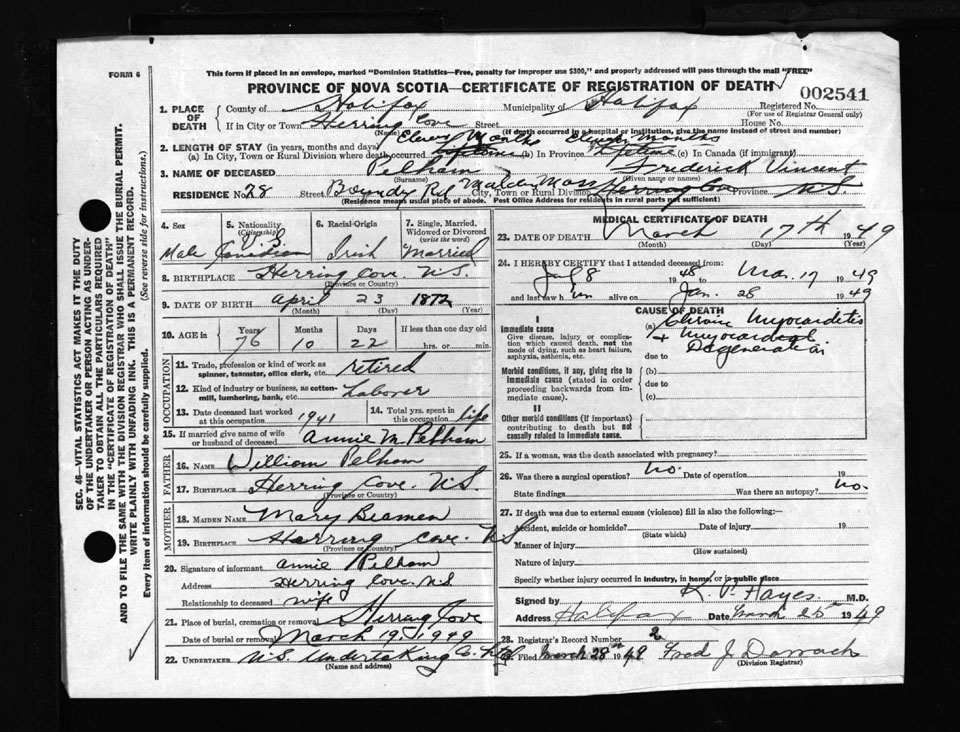 FORM 6
This form if placed in an envelope, marked "Dominion Statistics—Free, penalty for improper use $300," and properly addressed will pass through the mail "FREE"
PROVINCE OF NOVA SCOTIA—CERTIFICATE OF REGISTRATION OF DEATH
002541
1. PLACE OF DEATH
County of Halifax Municipality of Halifax Registered No.
(For use of Registrar General only)
If in City or Town Herring Cove Street House No.
(Name) (If death occurred in a hospital or institution, give the name instead of street and number)
Eleven Months Eleven Months
2. LENGTH OF STAY (in years, months and days)
(a) In City, Town or Rural Division where death occurred (b) In Province Lifetime (c) In Canada (if immigrant)
3. NAME OF DECEASED Pelham Frederick Vincent
(Surname) (Given name or names)
RESIDENCE No. 28 Street Boundry Rd Malden Mass City, Town or Rural Division Herring Cove Province N.S.
(Residence means usual place of abode. Post Office Address for residents in rural parts not sufficient)
4. Sex
Male
5. Nationality (Citizenship)
U.S
Canadian
6. Racial Origin
Irish
7. Single, Married, Widowed or Divorced (write the word)
Married
8. BIRTHPLACE Herring Cove N.S.
(Province or Country)
9. DATE OF BIRTH April 23 1872
(Month) (Day) (Year)
10. AGE in Years Months Days If less than one day old
76 10 22 hrs. or min.
OCCUPATION
11. Trade, profession or kind of work as spinner, teamster, office clerk, etc. retired
12. Kind of industry or business, as cotton-mill, lumbering, bank, etc. Laborer
13. Date deceased last worked at this occupation 1941
14. Total yrs. spent in this occupation life
15. If married give name of wife or husband of deceased Annie M Pelham
FATHER
16. NAME William Pelham
17. BIRTHPLACE Herring Cove. N.S.
(Province or Country)
MOTHER
18. MAIDEN NAME Mary Beamen
19. BIRTHPLACE Herring Cove. N.S
(Province or Country)
20. Signature of informant Annie Pelham
Address Herring Cove. N.S
Relationship to deceased wife
21. Place of burial, cremation or removal Herring Cove
Date of burial or removal March 19, 1949
22. UNDERTAKER N.S. Undertaking Co. Ltd
(Name and address)
MEDICAL CERTIFICATE OF DEATH
23. DATE OF DEATH March 17th 1949
(Month) (Day) (Year)
24. I HEREBY CERTIFY that I attended deceased from:
Jul 8 1948 to Mar. 17 1949
and last saw him alive on Jan. 28 1949
CAUSE OF DEATH
I
Immediate cause
Give disease, injury or complication which caused death, not the mode of dying, such as heart failure, asphyxia, asthenia, etc.
(a) Chronic Myocarditis
+ Myocardial
due to Degeneration
Morbid conditions, if any, giving rise to immediate cause (stated in order proceeding backwards from immediate cause).
(b)
due to
(c)
II
Other morbid conditions (if important) contributing to death but not causally related to immediate cause.
25. If a woman, was the death associated with pregnancy?
26. Was there a surgical operation? no. Date of operation 19
State findings Was there an autopsy? no.
27. If death was due to external causes (violence) fill in also the following:—
Accident, suicide or homicide? Date of injury 19
(State which)
Manner of injury
(How sustained)
Nature of injury
Specify whether injury occurred in industry, in home, or in public place
Signed by K. P. Hayes M.D.
Address Halifax Date March 25th 1949
28. Registrar's Record Number 2
Filed March 28th 1949 Fred J Darrach
(Division Registrar)
SEC. 46—VITAL STATISTICS ACT MAKES IT THE DUTY
OF THE UNDERTAKER OR PERSON ACTING AS UNDER-
TAKER TO OBTAIN ALL THE PARTICULARS REQUIRED
IN THE "CERTIFICATE OF REGISTRATION OF DEATH"
AND TO FILE THE SAME WITH THE DIVISION REGISTRAR WHO SHALL ISSUE THE BURIAL PERMIT.
WRITE PLAINLY WITH UNFADING INK. THIS IS A PERMANENT RECORD.
Every item of information should be carefully supplied. (See reverse side for instructions.)